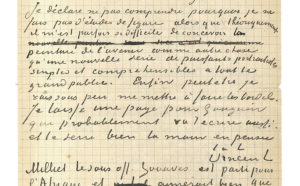 Je déclare ne pas comprendre pourquoi je ne
fais pas d'études de figure alors que théoriquement
il m'est parfois si difficile de concevoir la
peinture de l'avenir comme autre chose
qu'une nouvelle série de puissants portraitistes
simples et compréhensibles à tout le
grand public. Enfin peut être je
vais sous peu me mettre à faire les bordels.
Je laisse une page pour Gauguin
que probablement va t'écrire aussi
et te serre bien la main en pensée
t. à t.
Vincent
Milliet le sous off. Zouaves est parti pour
l'Afrique et aimerait bien que